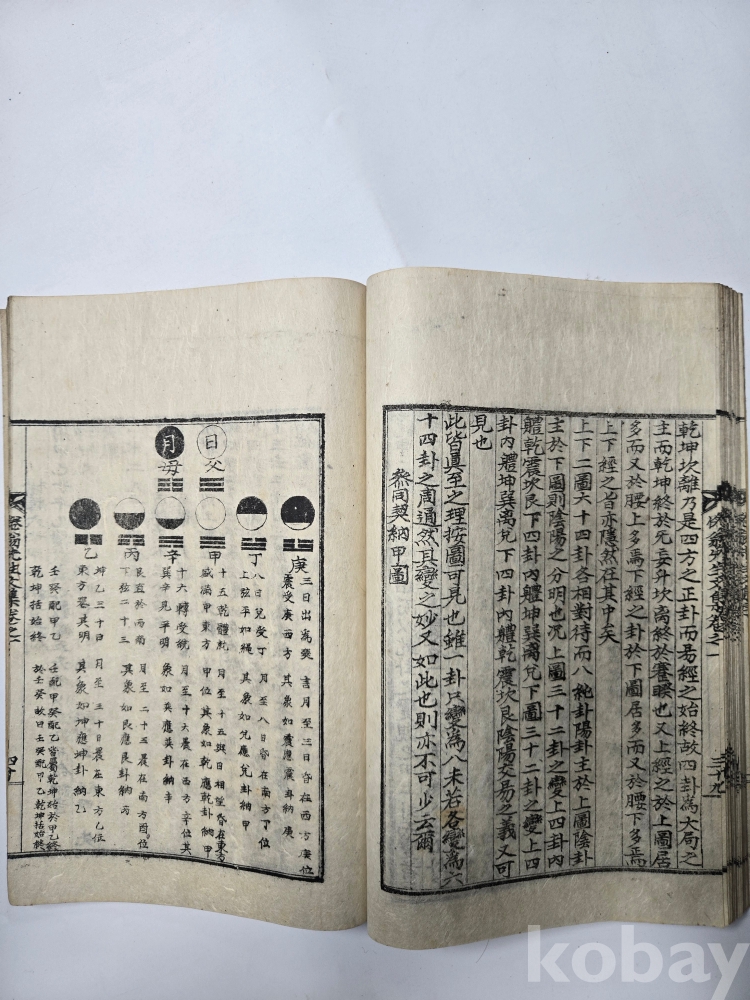 乾坤坎離乃是四方之正卦而易經之始終故四卦爲大局之
主而乾坤終於先妄升坎離終於蹇睽也又上經之於上圖居
多而又於腰上多焉下經之卦於下圖居多而又於腰下多焉
上下經之旨亦隱然在其中矣
上下二圖六十四卦各相對待而八純卦陽卦主於上圖陰卦
主於下圖則陰陽之分明也況上圖三十二卦之變上四卦內
軆乾震坎艮下四卦內軆坤巽离兌下圖三十二卦之變上四
卦內軆坤巽离兌下四卦內軆乾震坎艮陰陽交易之義又可
見也
此皆眞至之理按圖可見也雖一卦只變爲八未若各變爲六
十四卦之周通然其變之妙又如此也則亦不可少云爾
叅同契納甲圖
三十九
日
父
月
母
庚
三日出爲爽
震受庚西方
言月至三日昏在西方庚位
其象如震應震卦納庚
丁
八日兌受丁
上弦平如繩
月至八日昏在南方丁位
其象如兌應兌卦納丁
甲
十五乾體就
盛滿甲東方
月至十五與日相望昏在東方
甲位其象如乾應乾卦納甲
辛
十六轉受統
巽辛見平明
月至十六晨在西方辛位其
象如巽應巽卦納辛
丙
艮直於丙南
下弦二十三
月至二十三晨在南方丙位
其象如艮應艮卦納丙
乙
坤乙三十日
東方喪其明
月至三十日晨在東方乙位
其象如坤應坤卦納乙
壬癸配甲乙
乾坤括始終
壬配甲癸配乙皆屬乾坤始於甲乙終
於壬癸故曰壬癸配甲乙乾坤括始終
四十
kobay